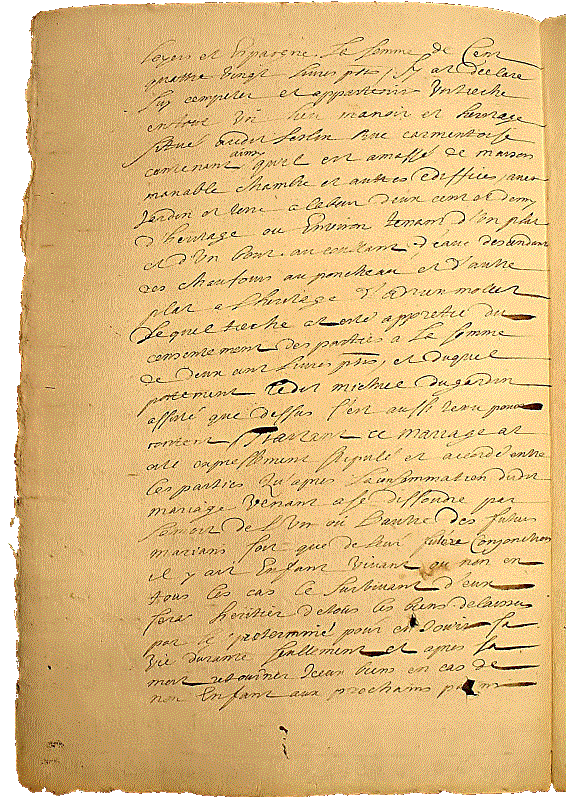 loyers et Epargne. La somme de Cent
quattre vingt livres pts, Sy at declare
Luy competer et appartenir
en tout lieu manoir et heritage
Rue carmentoise
contenant ainsy quil est amassé de maison
manable chambre et autres edifices, avec
Jardin et terre a labeur d'un cent et demy
d'heritage ou Environ tenant d'un plat
et d'un bout au courant d'eaue descendant
des chaufours au poncheau et d'autre
plat a L'heritage d'adrien
Lequel at esté appretié du
consentement des parties a La somme
de deux cent livres pts, et duquel
portement Ledit michel dugardin
assisté que dessus s'est aussy tenu pour
content, Traictant ce mariage at
esté expressement stipulé et accordé entre
les parties qu'apres La consommation dudit
mariage venant a se dissoudre par
La mort de L'un ou L'autre des futurs
marians soit que de leur future Conjonction
il y ait Enfant vivant ou non en
tous les cas le survivant d'eux
sera heritier de tous les biens delaissés
par le pretermine pour en Jouir sa
vie durante seullement et apres sa
mort retourner Iceux biens en cas de
non Enfant aux prochains